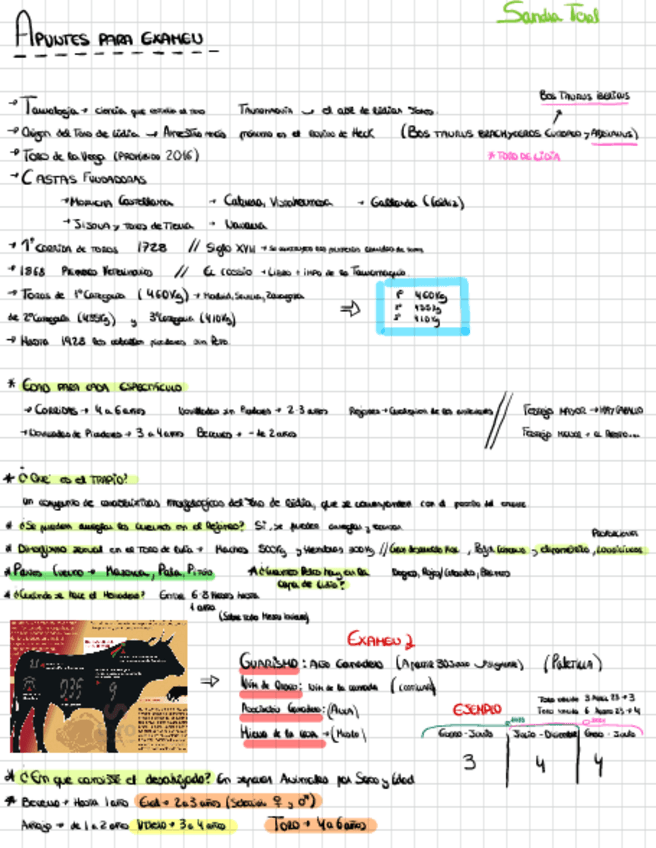 Sandra Toral
APUNTES PARA EXAMEN
→ Taurología → ciencia que estudia el toro Tauromaquia → el arte de lidiar toros.
BOS TAURUS IBERICUS
→ Origen del Toro de Lidia → Ancestro más próximo es el bovino de Heck (BOS TAURUS BRACHYCEROS EUROPEO y AFRICANUS)
→ Toro de la Vega (PROHIBIDO 2016) * TORO DE LIDIA
→ CASTAS FUNDADORAS
→ Morucha Castellana → Cabrera, Vistahermosa → Gallardo (Cádiz)
→ Jijona y Toros de Tierra → Navarra
→ 1ª CORRIDA DE TOROS 1728 // Siglo XVIII →
→ 1868 Primero Veterinario // El Cossio → Libro + impo de la Tauromaquia
→ Toros de 1ª Categoria (460Kg) → Madrid, Sevilla, Zaragoza
de 2ªCategoria (435Kg) y 3ªCategoria (410Kg)
⇒ 1ª 460Kg
2ª 435Kg
3ª 410Kg
→ Hasta 1928 los caballos picadores sin Peto.
* EDAD PARA CADA ESPECTÁCULO
→ Corridas → 4 a 6 años Novilladas sin Picadores → 2-3 años Rejones → Cualquiera de las anteriores // Festejo MAYOR → HAY CABALLO
→ Novilladas de Picadores → 3 a 4 años Becerros → - de 2 años Festejo MENOR → El Resto...
* ¿Qué es el TRAPIO?
un conjunto de características morfologicas del Toro de Lidia, que se corresponden con el
* ¿Se pueden arreglar los cuernos en el Rejoneo? Si, se pueden arreglar y
Proporciones
* Dimorfismo sexual en el Toro de Lidia → Machos 500Kg y Hembras 300Kg //
* Partes Cuerno → Mazorca, Pala, Pitón * ¿Cuántos Pelos hay en la capa de Lidia? Negros, Rojo/Colorado,
* ¿Cuándo se hace el Herradero? Entre 6-8 Meses hasta
1 año
(Sobre todo Meses Invierno)
EXAMEN 2
⇒ GUARISMO: Año Ganadero (Paletilla)
Nºn de Orden: Nºn de la camada (costillar)
Asociación Ganadera: (Anca)
Hierro de la Casa → (Muslo)
EJEMPLO
Toro nacido 3 Abril 23 → 3
Toro nacido 6 Agosto 23 → 4
Enero - Junio Julio - Diciembre Enero - Junio
3 4 4
* ¿En que consiste el desahijado? En separar Animales por Sexo y Edad
* Becerro → Hasta 1 año Eral → 2 a 3 años (Selección ♀ y ♂)
Añojo → de 1 a 2 años Utrero → 3 a 4 años Toro → 4 a 6 años